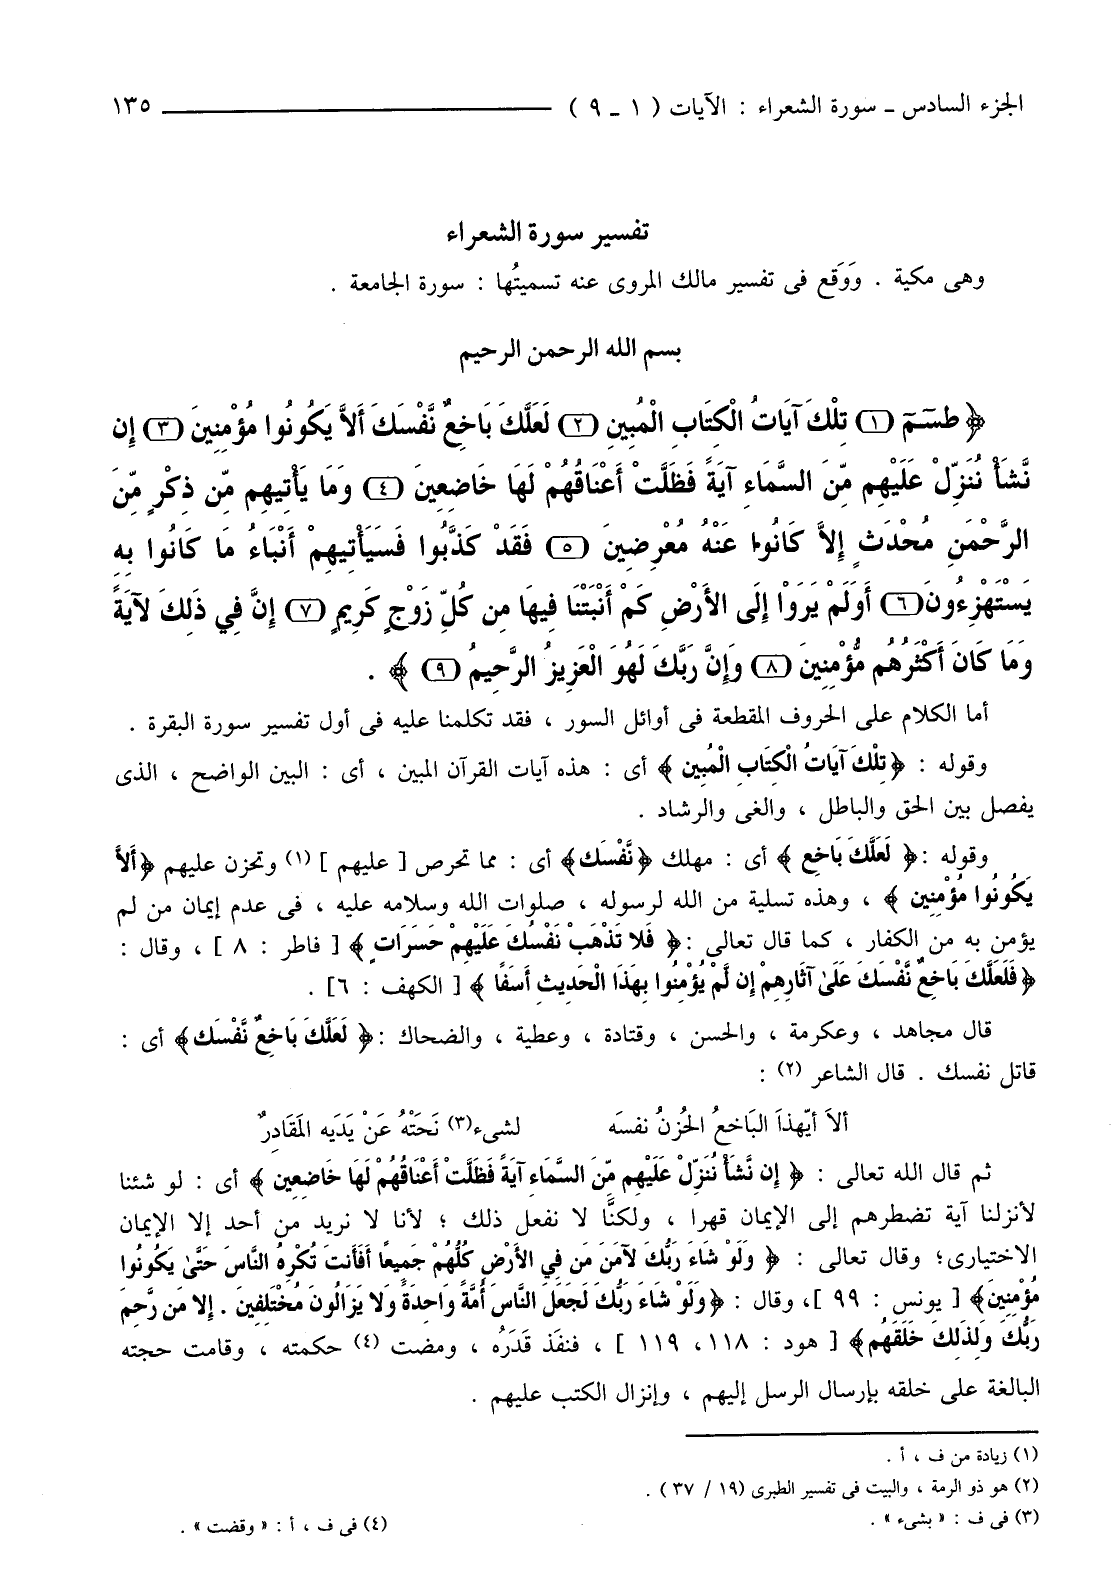 الجزء السادس ـ سورة الشعراء : الآيات ( ١ ـ ٩ ) ١٣٥
تفسير سورة الشعراء
وهى مكية . وَوَقع فى تفسير مالك المروى عنه تسميتُها : سورة الجامعة .
بسم الله الرحمن الرحيم
﴿ طسٓمٓ (١) تِلْكَ آيَاتُ الْكِتَابِ الْمُبِينِ (٢) لَعَلَّكَ بَاخِعٌ نَّفْسَكَ أَلاَّ يَكُونُوا مُؤْمِنِينَ (٣) إِن
نَّشَأْ نُنَزِّلْ عَلَيْهِم مِّنَ السَّمَاءِ آيَةً فَظَلَّتْ أَعْنَاقُهُمْ لَهَا خَاضِعِينَ (٤) وَمَا يَأْتِيهِم مِّن ذِكْرٍ مِّنَ
الرَّحْمَنِ مُحْدَثٍ إِلاَّ كَانُوا عَنْهُ مُعْرِضِينَ (٥) فَقَدْ كَذَّبُوا فَسَيَأْتِيهِمْ أَنْبَاءُ مَا كَانُوا بِهِ
يَسْتَهْزِءُونَ (٦) أَوَلَمْ يَرَوْا إِلَى الأَرْضِ كَمْ أَنْبَتْنَا فِيهَا مِن كُلِّ زَوْجٍ كَرِيمٍ (٧) إِنَّ فِي ذَلِكَ لآيَةً
وَمَا كَانَ أَكْثَرُهُم مُّؤْمِنِينَ (٨) وَإِنَّ رَبَّكَ لَهُوَ الْعَزِيزُ الرَّحِيمُ (٩) ﴾ .
أما الكلام على الحروف المقطعة فى أوائل السور ، فقد تكلمنا عليه فى أول تفسير سورة البقرة .
وقوله : ﴿ تِلْكَ آيَاتُ الْكِتَابِ الْمُبِين ﴾ أى : هذه آيات القرآن المبين ، أى : البين الواضح ، الذى
يفصل بين الحق والباطل ، والغى والرشاد .
وقوله :﴿ لَعَلَّكَ بَاخِع ﴾ أى : مهلك ﴿نَّفْسَك﴾ أى : مما تحرص [ عليهم ] (١) وتحزن عليهم ﴿أَلاَّ
يَكُونُوا مُؤْمِنِين ﴾ ، وهذه تسلية من الله لرسوله ، صلوات الله وسلامه عليه ، فى عدم إيمان من لم
يؤمن به من الكفار ، كما قال تعالى :﴿ فَلا تَذْهَبْ نَفْسُكَ عَلَيْهِمْ حَسَرَاتٍ ﴾ [ فاطر : ٨ ] ، وقال :
﴿ فَلَعَلَّكَ بَاخِعٌ نَّفْسَكَ عَلَىٰ آثَارِهِمْ إِن لَّمْ يُؤْمِنُوا بِهَذَا الْحَدِيثِ أَسَفًا ﴾ [ الكهف : ٦] .
قال مجاهد ، وعكرمة ، والحسن ، وقتادة ، وعطية ، والضحاك :﴿ لَعَلَّكَ بَاخِعٌ نَّفْسَك﴾ أى :
قاتل نفسك . قال الشاعر (٢) :
ألاَ أيّهذاَ البَاخعُ الحُزنُ نفسَه لشىء(٣) نَحَتْهُ عَنْ يَدَيه المَقَادِرُ
ثم قال الله تعالى : ﴿ إِن نَّشَأْ نُنَزِّلْ عَلَيْهِم مِّنَ السَّمَاءِ آيَةً فَظَلَّتْ أَعْنَاقُهُمْ لَهَا خَاضِعِين ﴾ أى : لو شئنا
لأنزلنا آية تضطرهم إلى الإيمان قهرا ، ولكنَّا لا نفعل ذلك ؛ لأنا لا نريد من أحد إلا الإيمان
الاختيارى؛ وقال تعالى : ﴿ وَلَوْ شَاءَ رَبُّكَ لآمَنَ مَن فِي الأَرْضِ كُلُّهُمْ جَمِيعًا أَفَأَنتَ تُكْرِهُ النَّاسَ حَتَّىٰ يَكُونُوا
مُؤْمِنِينَ﴾ [ يونس : ٩٩ ]، وقال : ﴿وَلَوْ شَاءَ رَبُّكَ لَجَعَلَ النَّاسَ أُمَّةً وَاحِدَةً وَلا يَزَالُونَ مُخْتَلِفِينَ . إِلا مَن رَّحِمَ
رَبُّكَ وَلِذَلِكَ خَلَقَهُم﴾ [ هود : ١١٨، ١١٩ ] ، فنفَذ قَدَرُه ، ومضت (٤) حكمته ، وقامت حجته
البالغة على خلقه بإرسال الرسل إليهم ، وإنزال الكتب عليهم .
(١) زيادة من ف ، أ .
(٢) هو ذو الرمة ، والبيت فى تفسير الطبرى (١٩ / ٣٧ ) .
(٣) فى ف : « بشىء » . (٤) فى ف ، أ : « وقضت » .